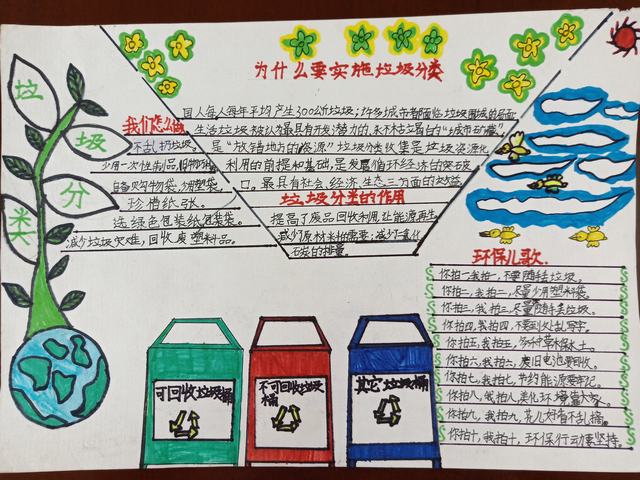 垃
圾
分
类
为什么要实施垃圾分类
国人每人每年平均产生300公斤垃圾;许多城市都面临垃圾围城的局面
生活垃圾被认为最具有开发潜力的、永不枯竭的"城市矿藏"
是"放错地方的资源"垃圾分类收集是垃圾资源化
利用的前提和基础,是发展循环经济的突破
口,最具有社会、经济、生态三方面的效益
垃圾分类的作用
提高了废品回收利用,让能源再生。
减少了原材料的需要;减少了二氧化
石炭的排量。
我们怎么做
不乱扔垃圾
少用一次性制品,
自备购物袋,少用塑袋,
珍惜纸张。
选绿色包装纸包装袋。
减少垃圾灾难,回收废塑料品。
可回收垃圾桶
不可回收垃圾
桶
其它垃圾桶
环保儿歌
你拍一我拍一,不要随手丢垃圾。
你拍二,我拍二,尽量少用塑料袋。
你拍三,我拍三,尽量随手丢垃圾。
你拍四,我拍四,不要到处乱写字。
你拍五,我拍五,多种草木保水土。
你拍六,我拍六,废旧电池要回收。
你拍七,我拍七,节约能源要牢记。
你拍八,我拍八,美化环境
你拍九,我拍九,花儿好看不乱摘。
你拍十,我拍十,环保行动要坚持。